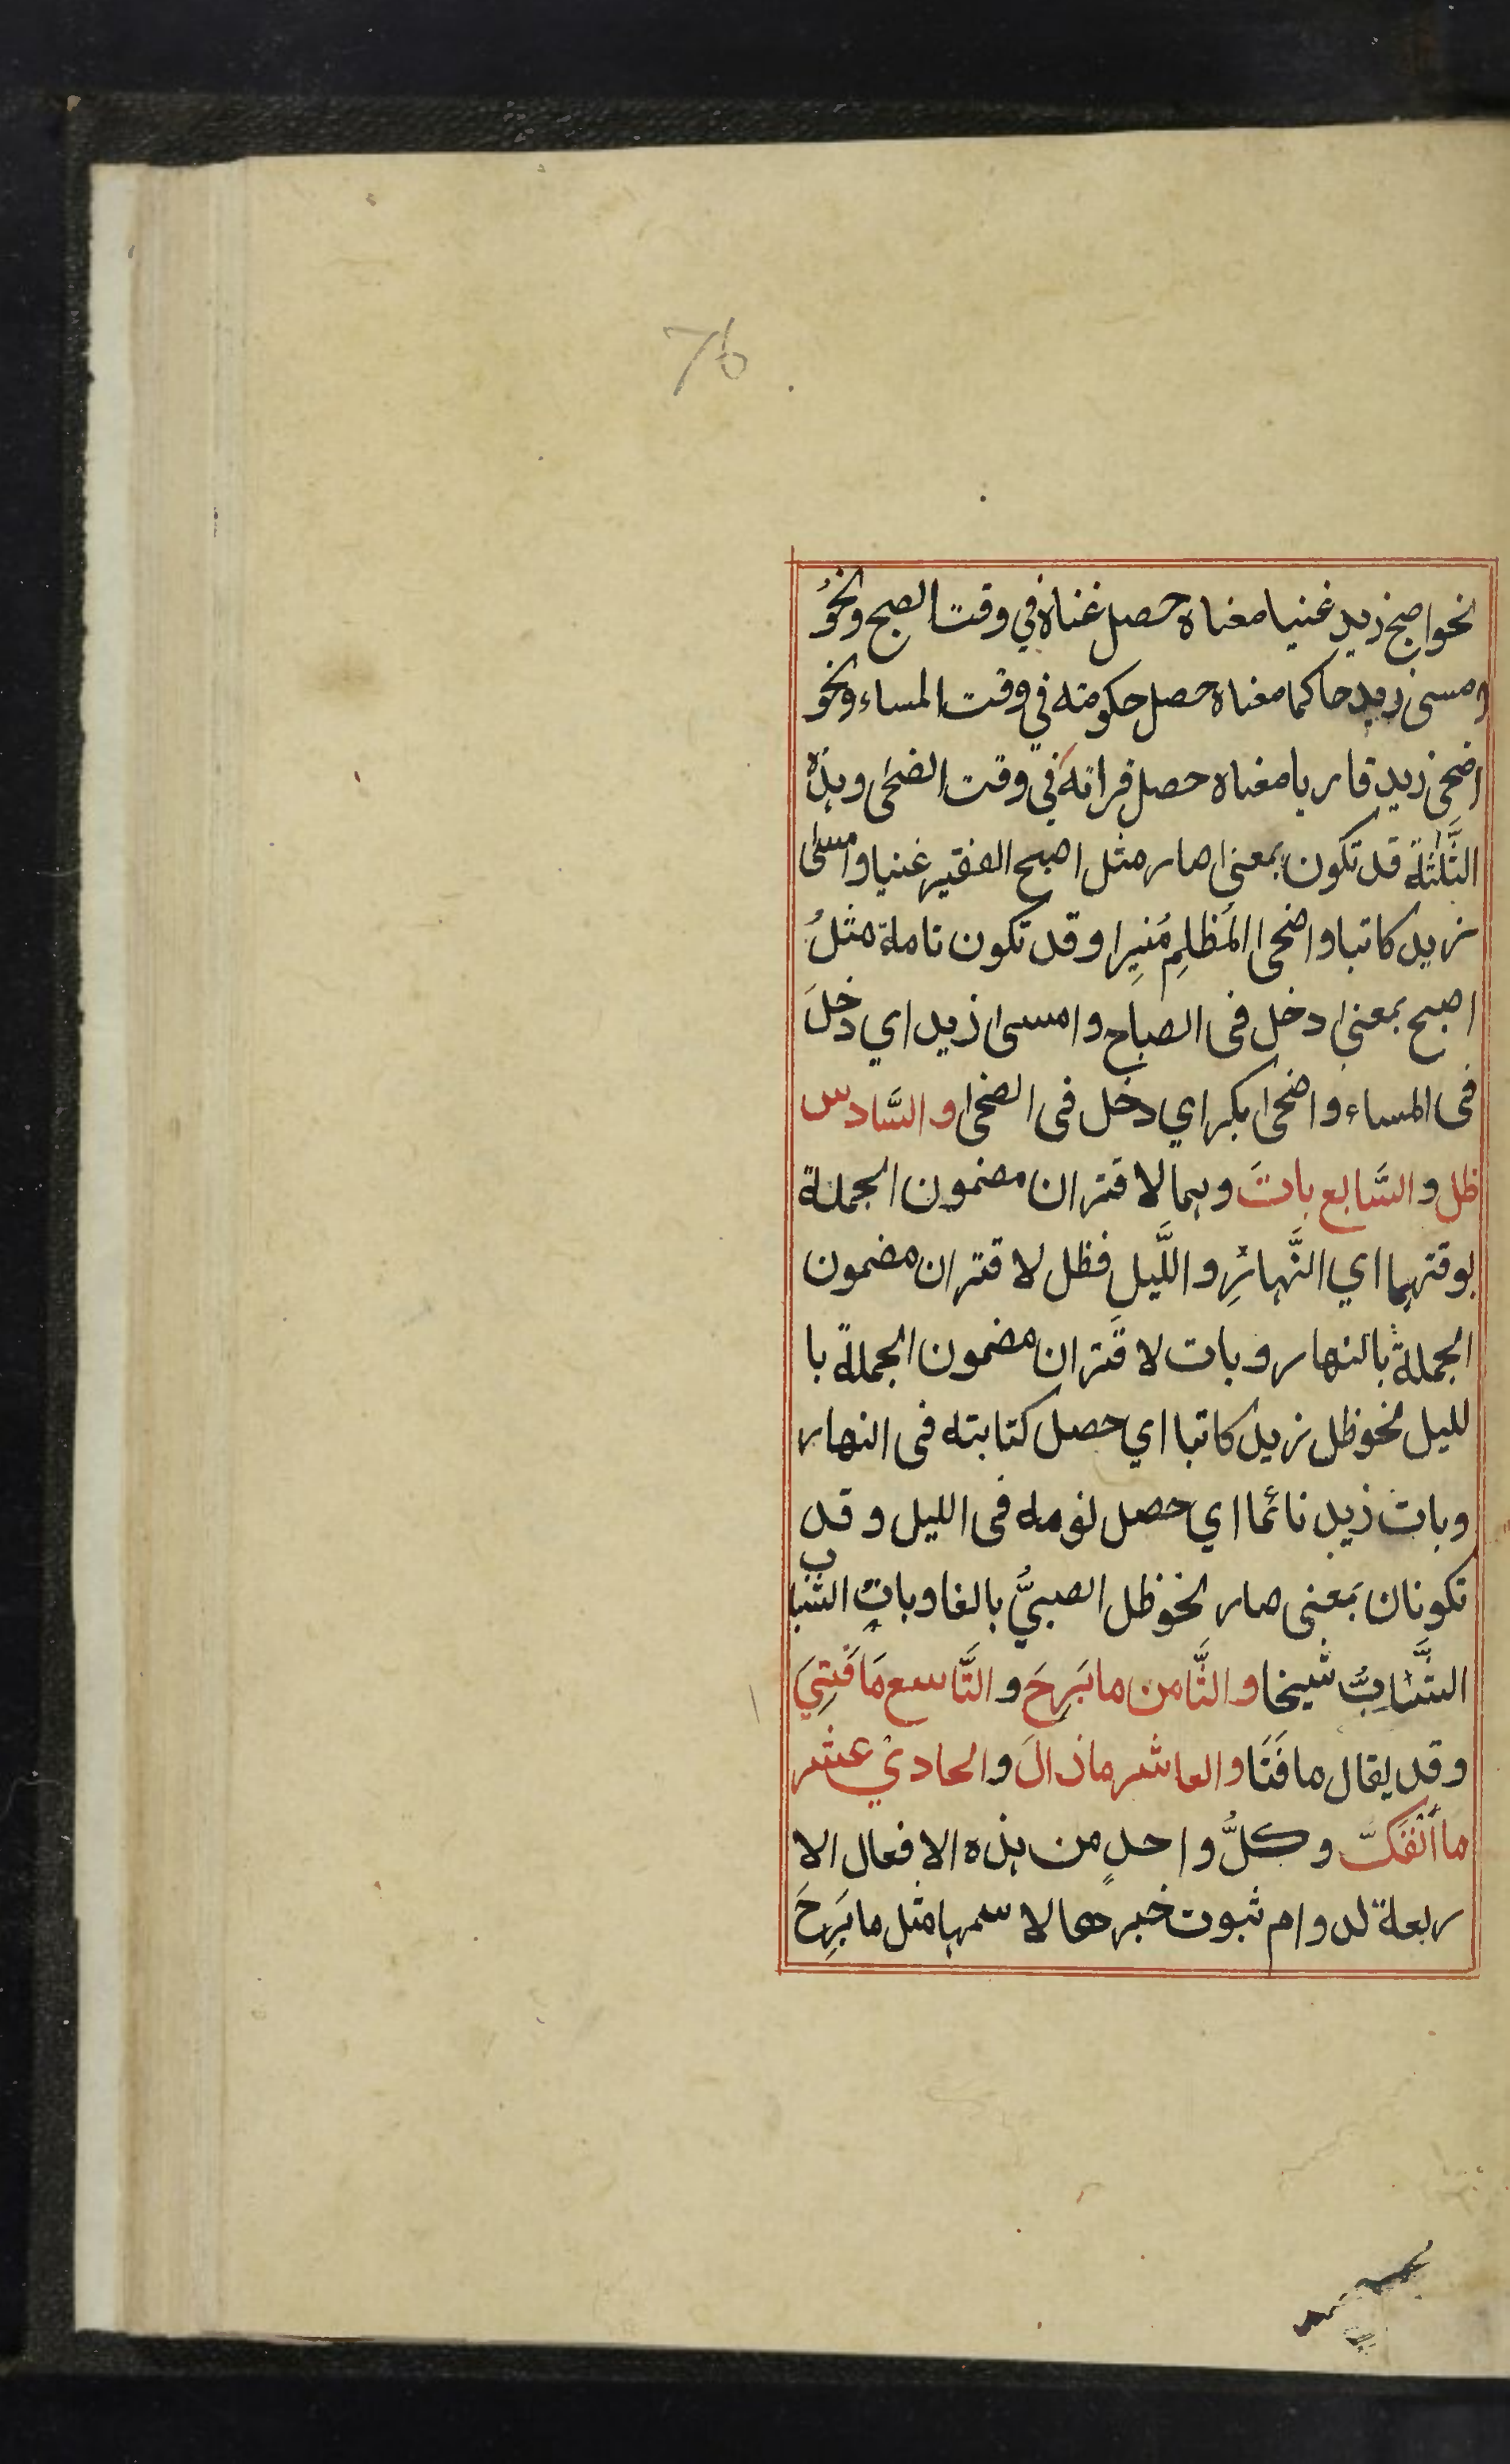 76
نحو اصبح زيد غنيا معناه حصل غناه في وقت الصبح ونحوُ
امسى زيد حاكما معناه حصل حكومته في وقت المساء ونحو
اضحى زيد قاريا معناه حصل قرائته في وقت الضحى وہذہ
الثَّلٰثة قد تكون بمعنى صار مثل اصبح الفقير غنيا وامسى
زيد كاتبا واضحى المُظلِم مُنيرا وقد تكون تاملة مثلُ
اصبح بمعنى دخل فى الصباح وامسى زيد اي دخلَ
فى المساء واضحى بكر اي دخل فى الضحى والسَّادس
ظل والسَّابع باتَ وہما لاقتران مضمون الجملة
بوقتہما اي النَّہارِ واللَّيلِ فظل لاقتران مضمون
الجملة بالنهار وبات لاقتران مضمون الجملة با
لليل نحو ظل زيد كاتبا اي حصل كتابته فى النهار
وبات زيد نائما اي حصل نومه فى الليل وقد
تكونان بمَعنى صار نحو ظل الصبيُّ بالغا وبات الشباب
الشَّابُّ شيخا والثَّامن ما بَرِحَ والتَّاسع مَا فَتِيَ
وقد يقال ما فَتَا والعاشر ما زالَ والحاديْ عشر
ما اَنْفَكَّ وكلُّ واحدٍ من ہذه الافعال الا
ربعة لدوام ثبوت خبرها لاسمہا مثل ما بَرِحَ